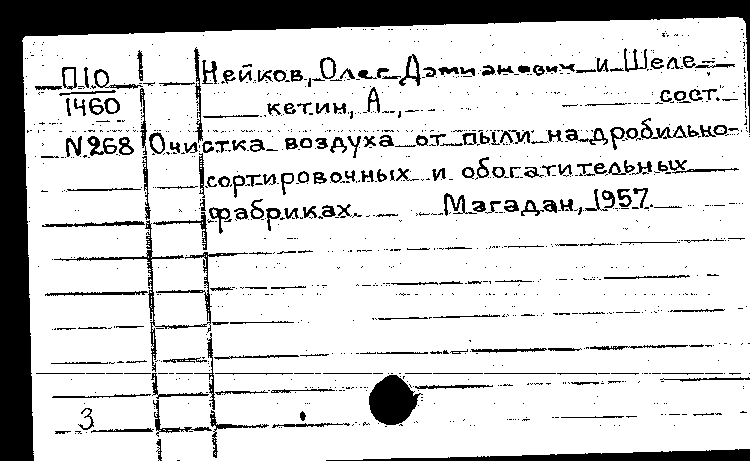 П10 Нейков, Олег Дэмианович и Шеле-
1460 кетин, А, сост.
N268 Очистка воздуха от пыли на дробильно-
сортировочных и обогатительных
фабриках. Магадан, 1957.
3